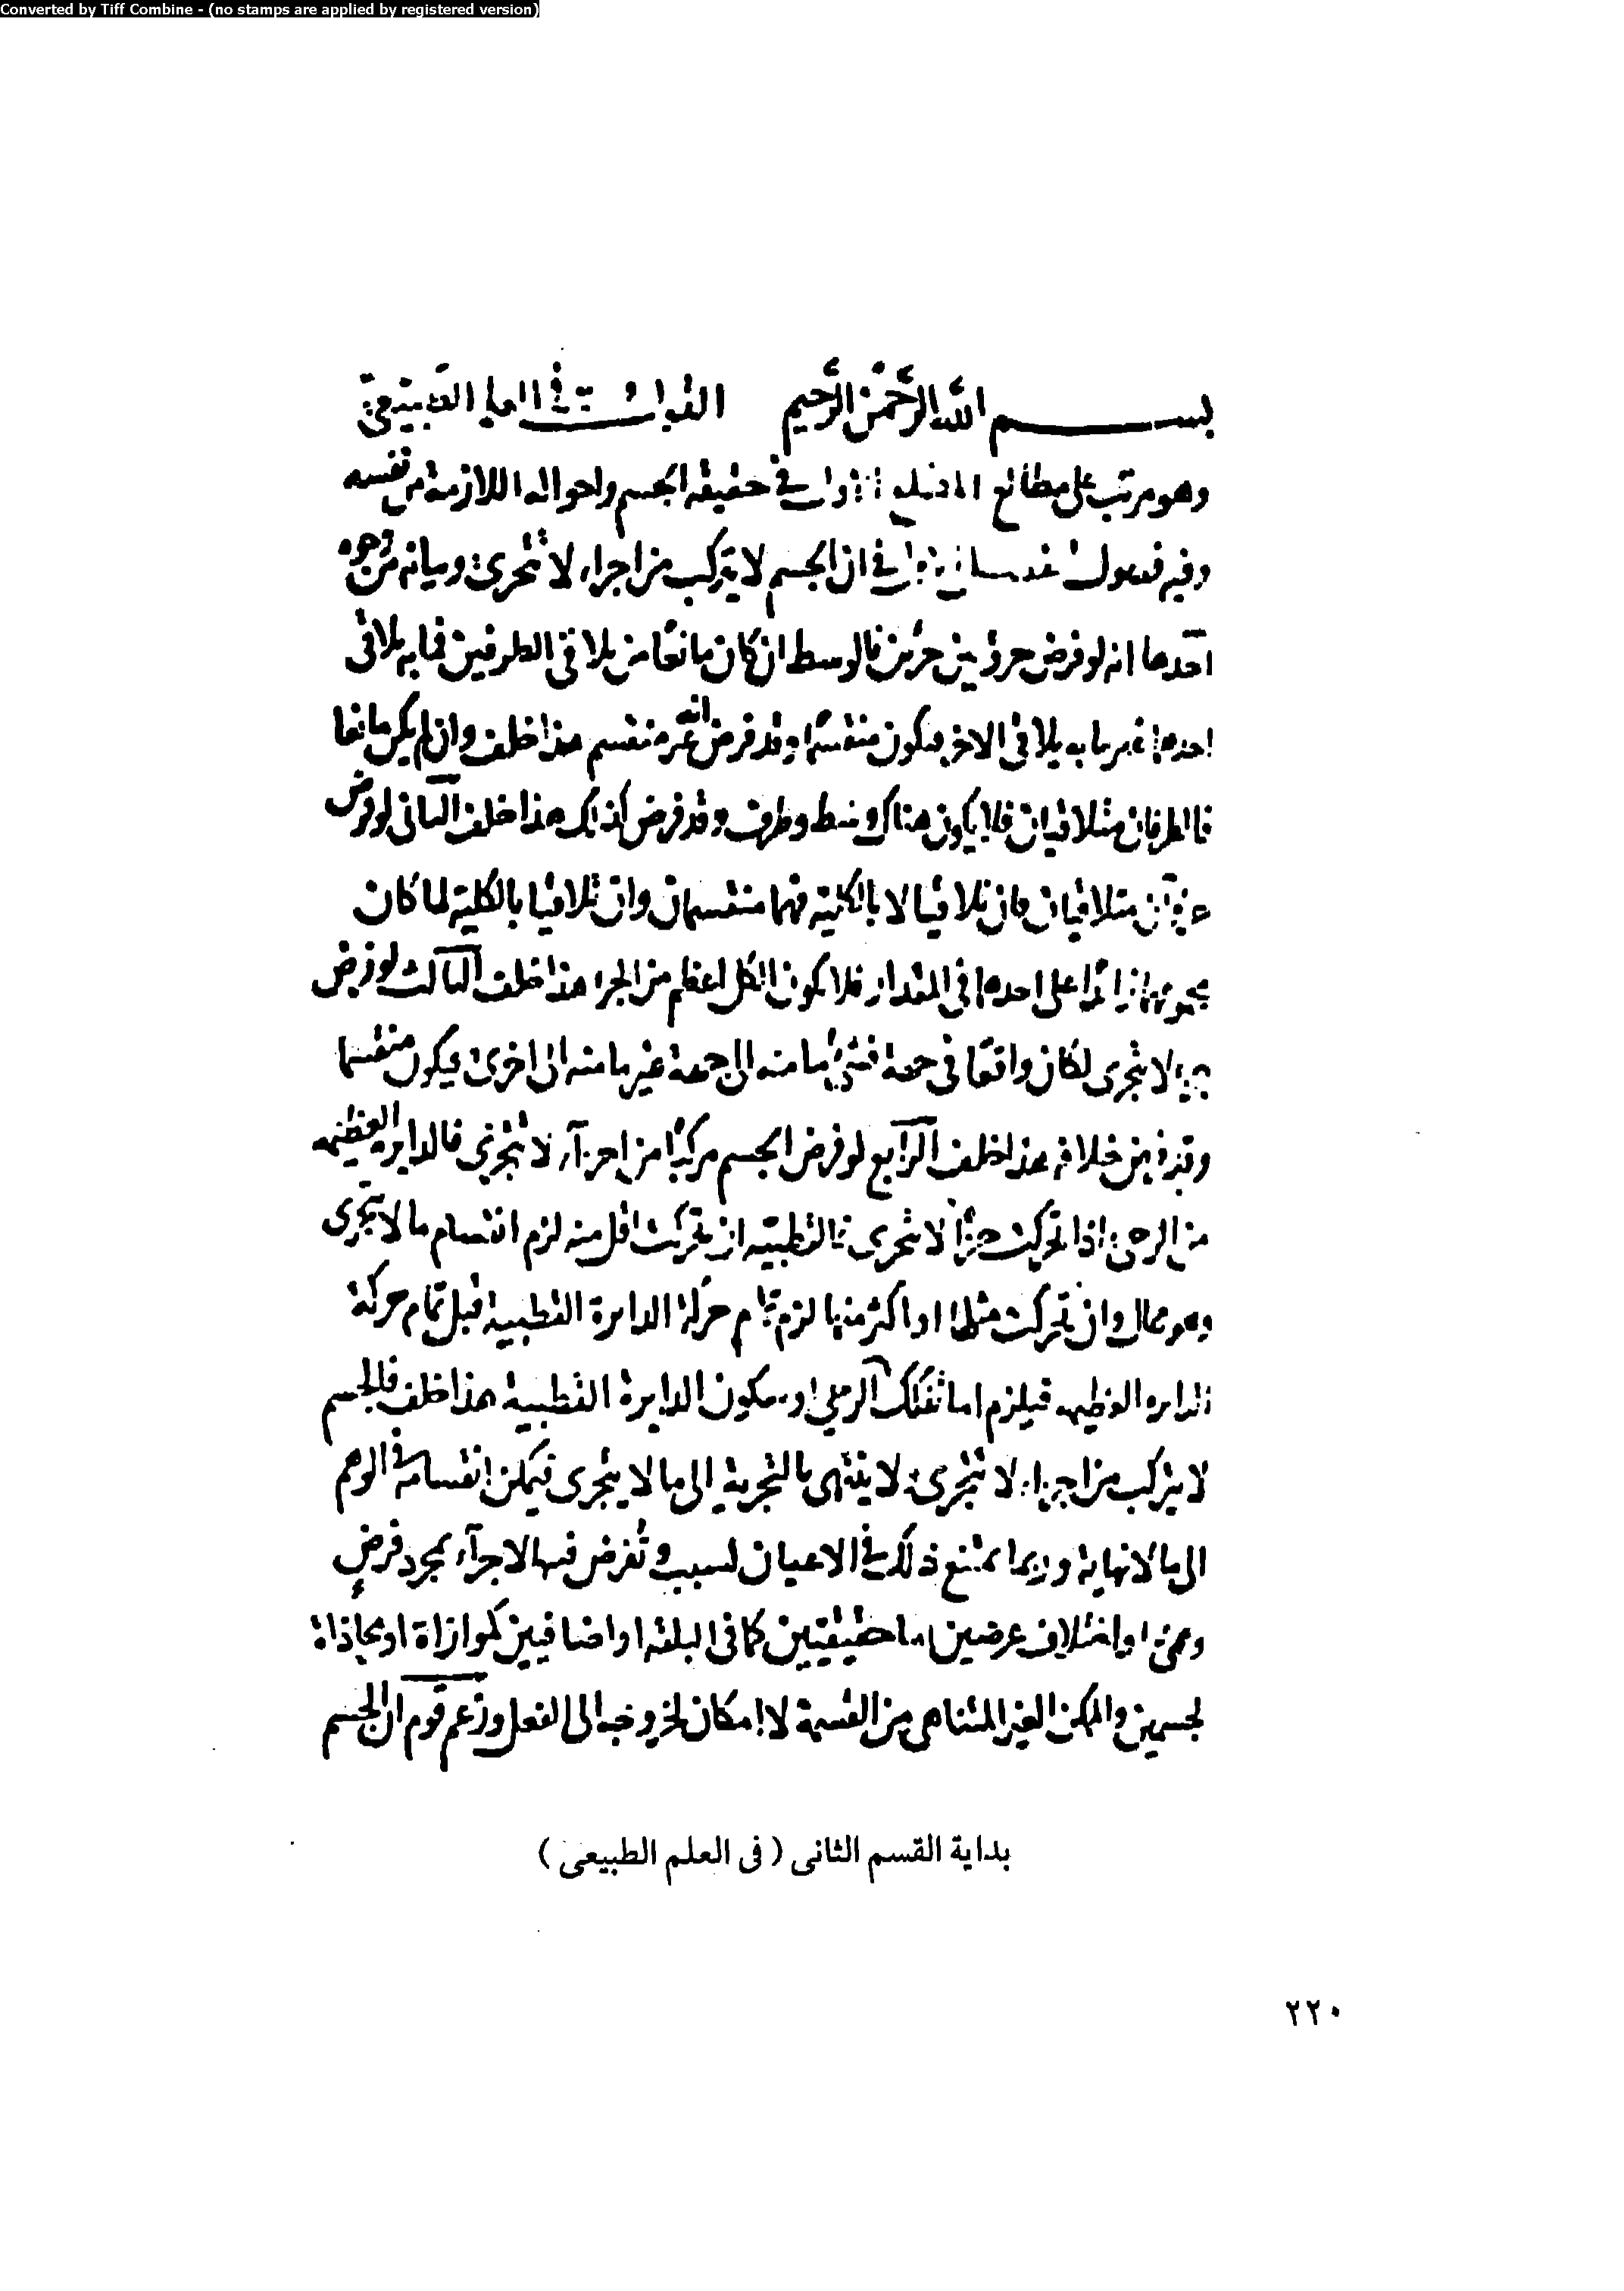 Converted by Tiff Combine - (no stamps are applied by registered version)
بسم الله الرحمن الرحيم في العلم الطبيعي
وهو مرتب على مطالع في حقيقة الجسم واحواله اللازمة من نفسه
وفيه فصول في ان الجسم لا يتركب من اجزاء لا تتجزى وبيانه من وجوه
احدها انه لو فرض جزؤ بين جزئين فالوسط ان كان مانعا من تلاقى الطرفين فما به يلاقى
احدهما غير ما به يلاقى الاخر فيكون منقسما وقد فرض انه غير منقسم هذا خلف وان لم يكن مانعا
فالطرفان متلاقيان فلا يكون هناك وسط وطرف وقد فرض كذلك هذا خلف الثانى لو فرض
جزآن متلاقيان فان تلاقيا لا بالكلية فهما منقسمان وان تلاقيا بالكلية لما كان
مجموعهما زائدا على احدهما فى المقدار فلا يكون الكل اعظم من الجزء هذا خلف الثالث لو فرض
جزء لا يتجزى لكان واقعا فى جهة منه الى جهة غير ما منه الى اخرى فيكون منقسما
وقد فرض خلافه هذا خلف الرابع لو فرض الجسم مركبا من اجزآء لا تتجزى فالدايرة العظيمة
من الرحى اذا تحركت جزأ لا يتجزى فالقطبية ان تحركت اقل منه لزم انقسام ما لا يتجزى
وهو محال وان تحركت مثلها او اكثر منها لزم تمام حركة الدايرة القطبية قبل تمام حركة
الدايرة العظيمة فيلزم اما تفكك الرحى او سكون الدايرة القطبية هذا خلف فالجسم
لا يتركب من اجزاء لا تتجزى ولا ينتهى بالتجزية الى ما لا يتجزى فيمكن انقسامه فى الوهم
الى ما لا نهاية وربما يمتنع ذلك فى الاعيان لسبب وتفرض فيها الاجزآء بمجرد فرض
او اختلاف عرضين اما حقيقيين كما فى البلقة او اضافيين كموازاة او محاذاة
لجسمين والممكن الغير المتناهى من القسمة لا امكان لخروجه الى الفعل وزعم قوم ان الجسم
بداية القسم الثانى ( فى العلم الطبيعى )
٢٢٠